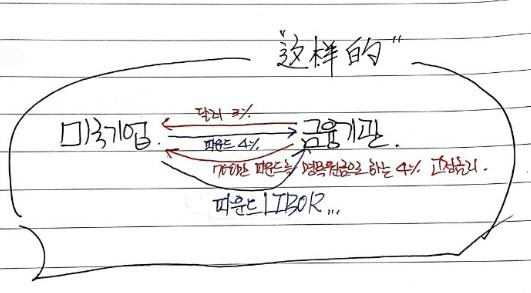 "这样的"
달러 3%
미국기업. 파운드 4% 금융기관.
700만 파운드를 명목원금으로 하는 4% 고정금리.
파운드 LIBOR...